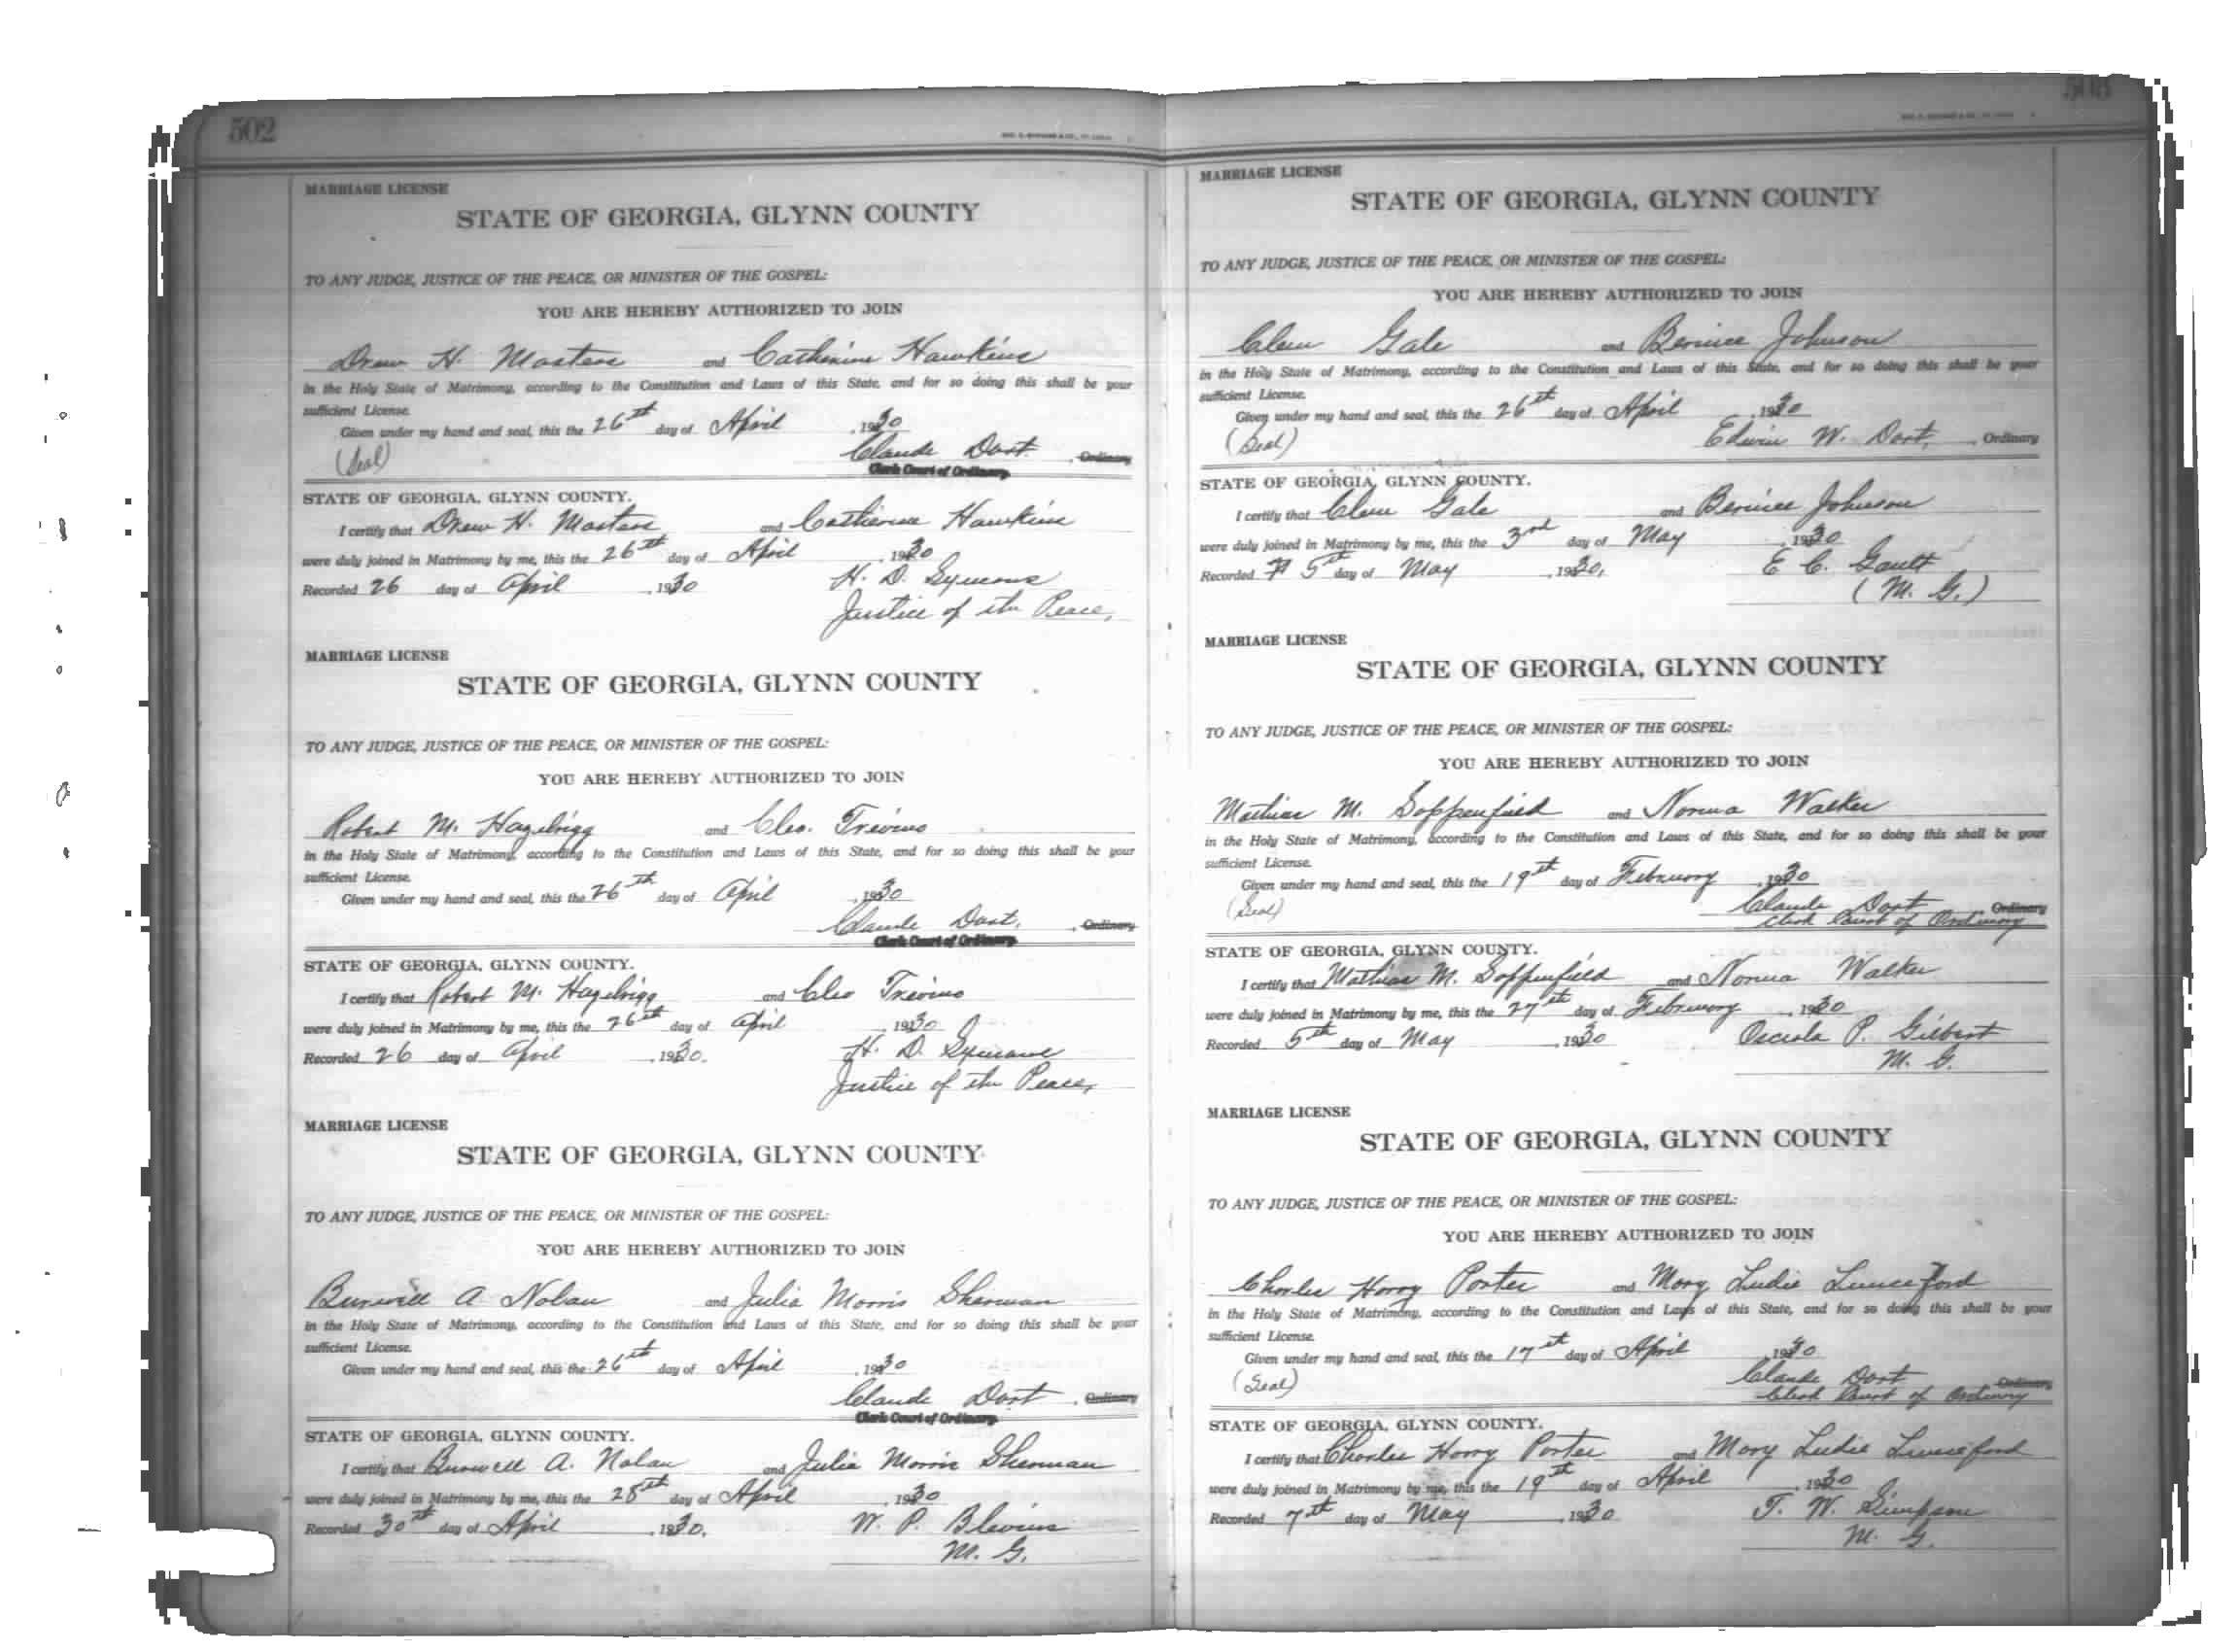 502
MARRIAGE LICENSE
STATE OF GEORGIA, GLYNN COUNTY
TO ANY JUDGE, JUSTICE OF THE PEACE, OR MINISTER OF THE GOSPEL:
YOU ARE HEREBY AUTHORIZED TO JOIN
Drew H. Masters and Catherine Hawkins
in the Holy State of Matrimony, according to the Constitution and Laws of this State, and for so doing this shall be your
sufficient License.
Given under my hand and seal, this the 26th day of April, 1930
(Seal) Claude Dart, Ordinary
Clerk Court of Ordinary.
STATE OF GEORGIA, GLYNN COUNTY.
I certify that Drew H. Masters and Catherine Hawkins
were duly joined in Matrimony by me, this the 26th day of April, 1930
Recorded 26 day of April, 1930 H. D. Symons
Justice of the Peace,
MARRIAGE LICENSE
STATE OF GEORGIA, GLYNN COUNTY
TO ANY JUDGE, JUSTICE OF THE PEACE, OR MINISTER OF THE GOSPEL:
YOU ARE HEREBY AUTHORIZED TO JOIN
Robert M. Hazelrigg and Cleo. Trevino
in the Holy State of Matrimony, according to the Constitution and Laws of this State, and for so doing this shall be your
sufficient License.
Given under my hand and seal, this the 26th day of April, 1930
Claude Dart, Ordinary
Clerk Court of Ordinary.
STATE OF GEORGIA, GLYNN COUNTY.
I certify that Robert M. Hazelrigg and Cleo Trevino
were duly joined in Matrimony by me, this the 26th day of April, 1930
Recorded 26 day of April, 1930. H. D. Symons
Justice of the Peace,
MARRIAGE LICENSE
STATE OF GEORGIA, GLYNN COUNTY
TO ANY JUDGE, JUSTICE OF THE PEACE, OR MINISTER OF THE GOSPEL:
YOU ARE HEREBY AUTHORIZED TO JOIN
Burwell A. Nolan and Julia Morris Sherman
in the Holy State of Matrimony, according to the Constitution and Laws of this State, and for so doing this shall be your
sufficient License.
Given under my hand and seal, this the 26th day of April, 1930
Claude Dart, Ordinary
Clerk Court of Ordinary.
STATE OF GEORGIA, GLYNN COUNTY.
I certify that Burwell A. Nolan and Julia Morris Sherman
were duly joined in Matrimony by me, this the 28th day of April, 1930
Recorded 30th day of April, 1930. W. P. Blevins
M. G.
MARRIAGE LICENSE
STATE OF GEORGIA, GLYNN COUNTY
TO ANY JUDGE, JUSTICE OF THE PEACE, OR MINISTER OF THE GOSPEL:
YOU ARE HEREBY AUTHORIZED TO JOIN
Clem Gale and Bernice Johnson
in the Holy State of Matrimony, according to the Constitution and Laws of this State, and for so doing this shall be your
sufficient License.
Given under my hand and seal, this the 26th day of April, 1930
(Seal) Edwin W. Dart, Ordinary
STATE OF GEORGIA, GLYNN COUNTY.
I certify that Clem Gale and Bernice Johnson
were duly joined in Matrimony by me, this the 3rd day of May, 1930
Recorded 5th day of May, 1930, E. C. Gault
(M. G.)
MARRIAGE LICENSE
STATE OF GEORGIA, GLYNN COUNTY
TO ANY JUDGE, JUSTICE OF THE PEACE, OR MINISTER OF THE GOSPEL:
YOU ARE HEREBY AUTHORIZED TO JOIN
Mathias M. Soppenfield and Norma Walker
in the Holy State of Matrimony, according to the Constitution and Laws of this State, and for so doing this shall be your
sufficient License.
Given under my hand and seal, this the 19th day of February, 1930
(Seal) Claude Dart Ordinary
Clerk Court of Ordinary
STATE OF GEORGIA, GLYNN COUNTY.
I certify that Mathias M. Soppenfield and Norma Walker
were duly joined in Matrimony by me, this the 27th day of February, 1930
Recorded 5th day of May, 1930 Osceola P. Gilbert
M. G.
MARRIAGE LICENSE
STATE OF GEORGIA, GLYNN COUNTY
TO ANY JUDGE, JUSTICE OF THE PEACE, OR MINISTER OF THE GOSPEL:
YOU ARE HEREBY AUTHORIZED TO JOIN
Charles Harry Porter and Mary Ludie Lunceford
in the Holy State of Matrimony, according to the Constitution and Laws of this State, and for so doing this shall be your
sufficient License.
Given under my hand and seal, this the 17th day of April, 1930
(Seal) Claude Dart Ordinary
Clerk Court of Ordinary
STATE OF GEORGIA, GLYNN COUNTY.
I certify that Charles Harry Porter and Mary Ludie Lunceford
were duly joined in Matrimony by me, this the 19th day of April, 1930
Recorded 7th day of May, 1930 T. W. Simpson
M. G.